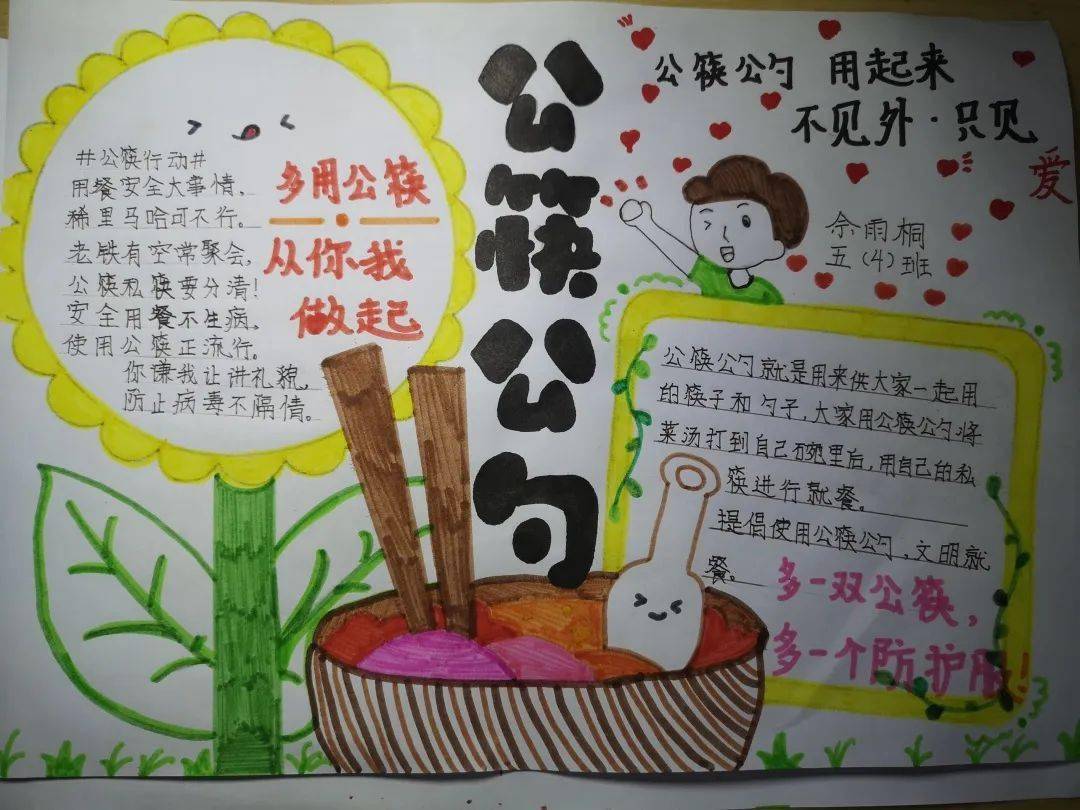 #公筷行动#
用餐安全大事情，
稀里马哈可不行。
老铁有空常聚会，
公筷私筷要分清！
安全用餐不生病。
使用公筷正流行。
你谦我让讲礼貌，
防止病毒不隔情。
多用公筷
从你我
做起
公筷公勺
公筷公勺 用起来
不见外·只见
爱
佘雨桐
五(4)班
公筷公勺就是用来供大家一起用
的筷子和勺子，大家用公筷公勺将
菜汤打到自己碗里后，用自己的私
筷进行就餐。
提倡使用公筷公勺，文明就
餐。
多一双公筷，
多一个防护服！